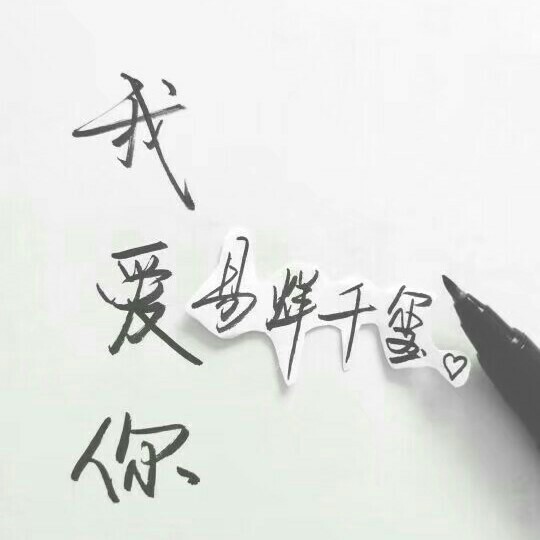 我爱你
易烊千玺。♡